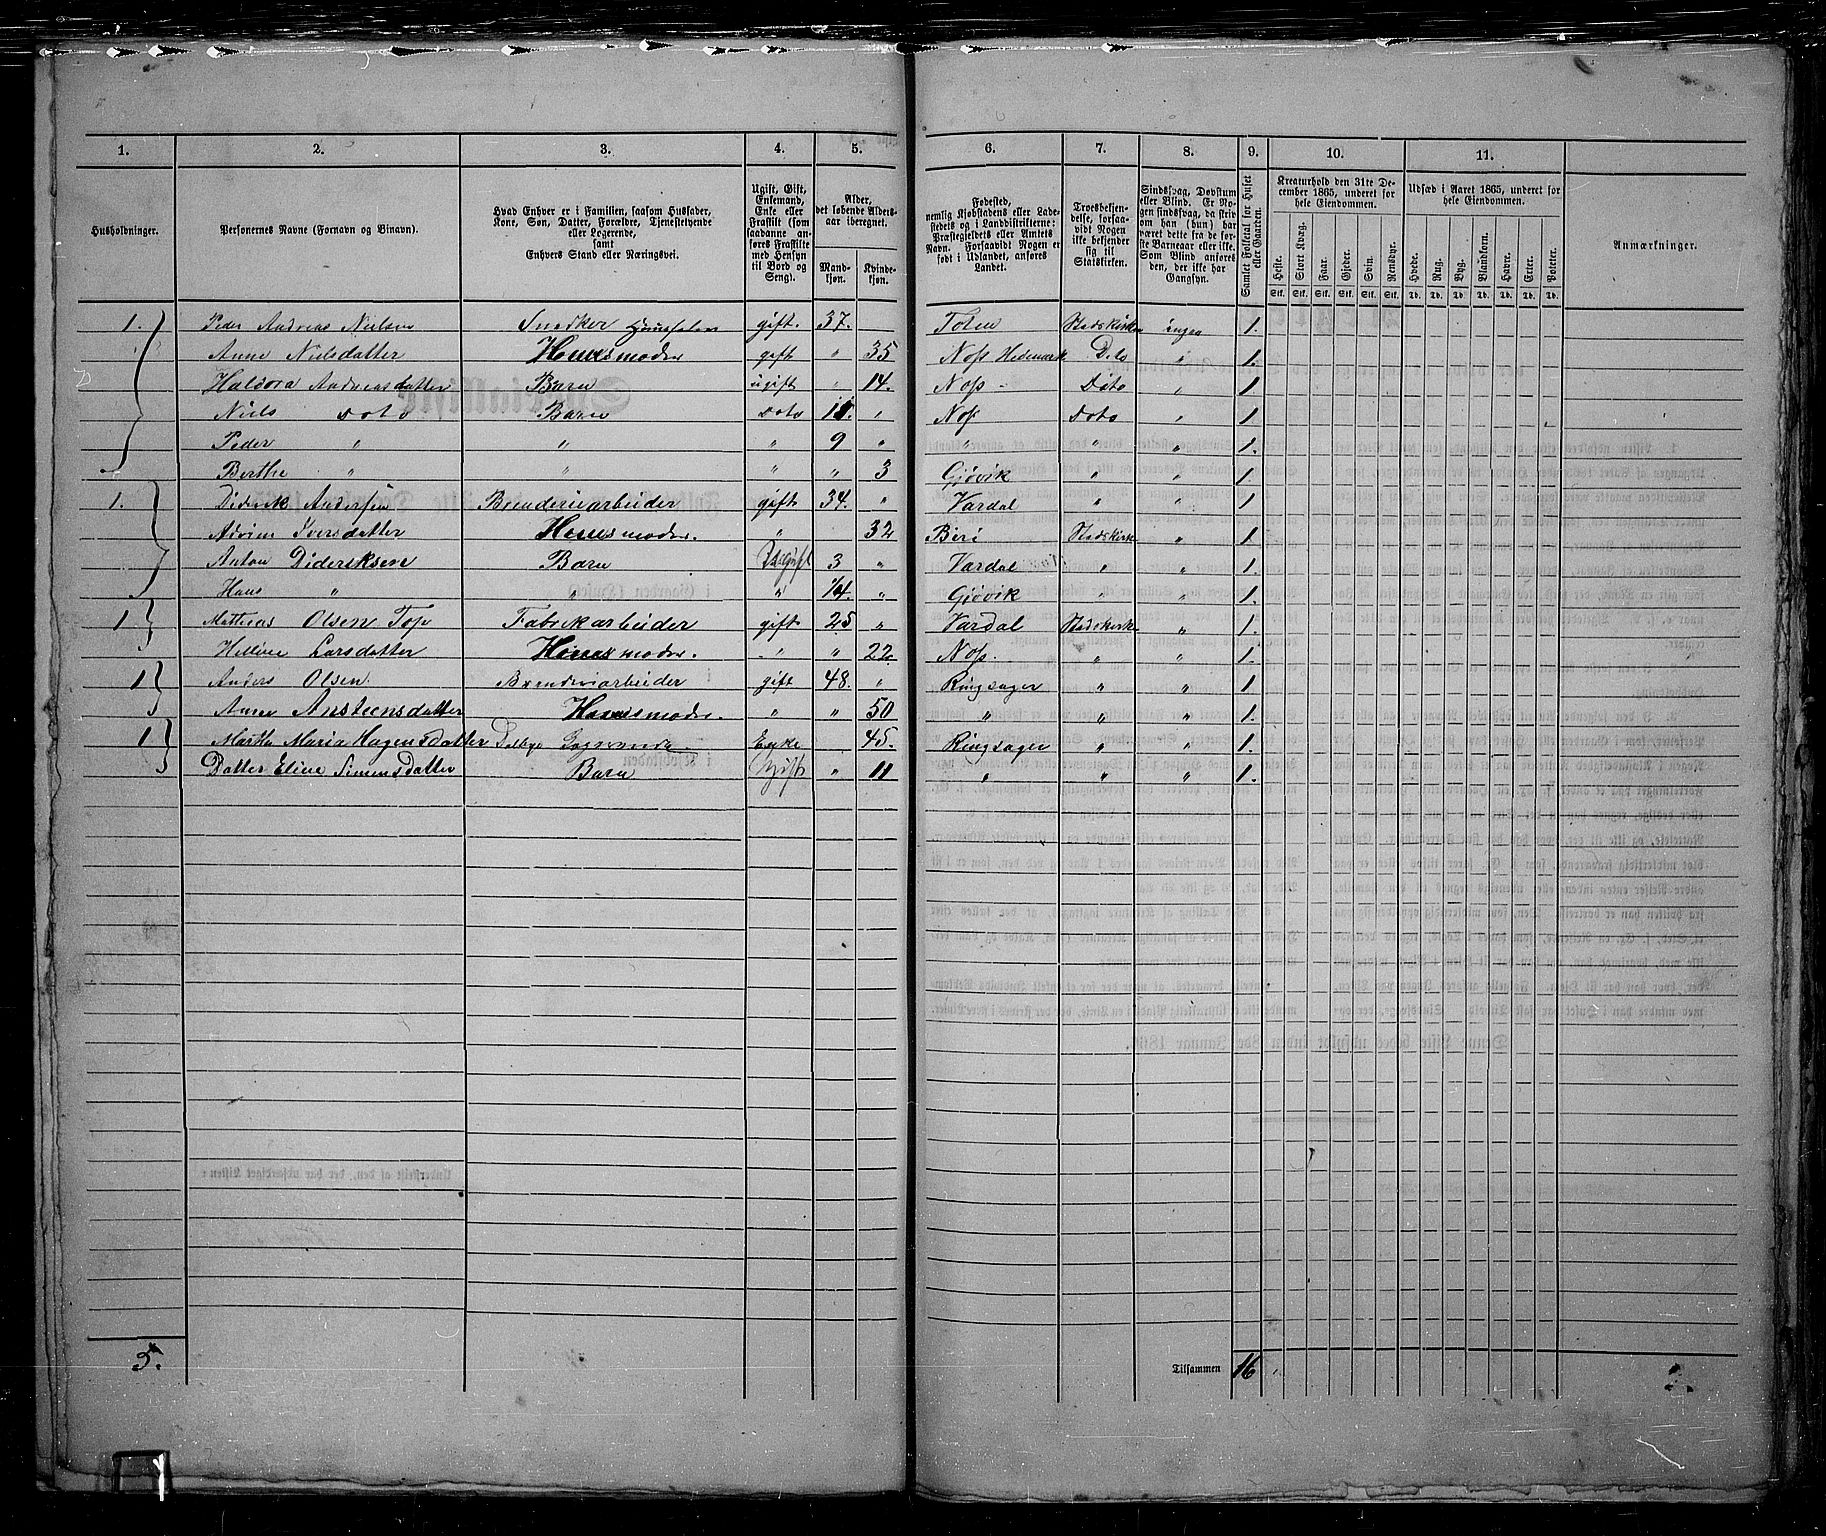 1. 2. 3. 4. 5. 6. 7. 8. 9. 10. 11.
Husholdninger.
Personernes Navne (Fornavn og Binavn).
Hvad Enhver er i Familien, saasom Husfader, Kone, Søn, Datter, Forældre, Tjenestetyende eller Logerende, samt Enhvers Stand eller Næringsvei.
Ugift, Gift, Enkemand, Enke eller Fraskilt (som saadanne anføres Fraskilte med Hensyn til Bord og Seng).
Alder, det løbende Alders-aar iberegnet.
Mand-kjøn. Kvinde-kjøn.
Fødested, nemlig Kjøbstadens eller Ladestedets og i Landdistrikterne: Præstegjeldets eller Amtets Navn. Forsaavidt Nogen er født i Udlandet, anføres Landet.
Troesbekjendelse, forsaavidt Nogen ikke bekjender sig til Statskirken.
Sindssvag, Døvstum eller Blind. Er Nogen sindssvag, da skrives om han (hun) har været dette fra de første Barneaar eller ikke. Som Blind anføres den, der ikke har Gangsyn.
Samlet Folketal for Huset eller Gaarden.
Kreaturhold den 31te December 1865, underet for hele Eiendommen.
Heste. Stort Kvæg. Faar. Gjeder. Svin. Rensdyr.
Stk. Stk. Stk. Stk. Stk. Stk.
Udsæd i Aaret 1865, underet for hele Eiendommen.
Hvede. Rug. Byg. Blandkorn. Havre. Erter. Poteter.
Td. Td. Td. Td. Td. Td. Td.
Anmærkninger.
1. Peder Andreas Nielsen Snedker gift. 37. Toten Stadskirken ingen 1.
Anne Nielsdatter Huusmoder gift " 35 Næs Hedemark Dito " 1.
Haldora Andreasdatter Barn ugift " 14. Næs - Dito " 1
Niels Doto Barn Doto 11. " Næs Doto " 1.
Peder " " " 9 " " " " 1.
Berthe " " " " 3 Gjøvik " " 1
1. Diderik Andersen Brenderiarbeider gift 34. " Vardal " " 1
Iversdatter Huusmoder. " 32 Biri Stadskirk " 1.
Anton Dideriksen Barn Ugift 3 " Vardal " " 1
Hans " " " 1/4. " Gjøvik " " 1.
1 Mathias Olsen Fabrikarbeider gift 25 " Vardal Stadskirk " 1.
Helline Larsdatter Huusmoder. " " 22. Næs. " " 1.
1 Anders Olsen. Brenderiarbeider gift 48. " Ringsager " " 1
Anne Ansteensdatter Huusmoder. " " 50 " " " 1.
1 Marthe Maria Hagensdatter Enke 45. Ringsager " " 1.
Datter Eline Simensdatter Barn Ugift " 11 " " " 1.
5.
Tilsammen 16